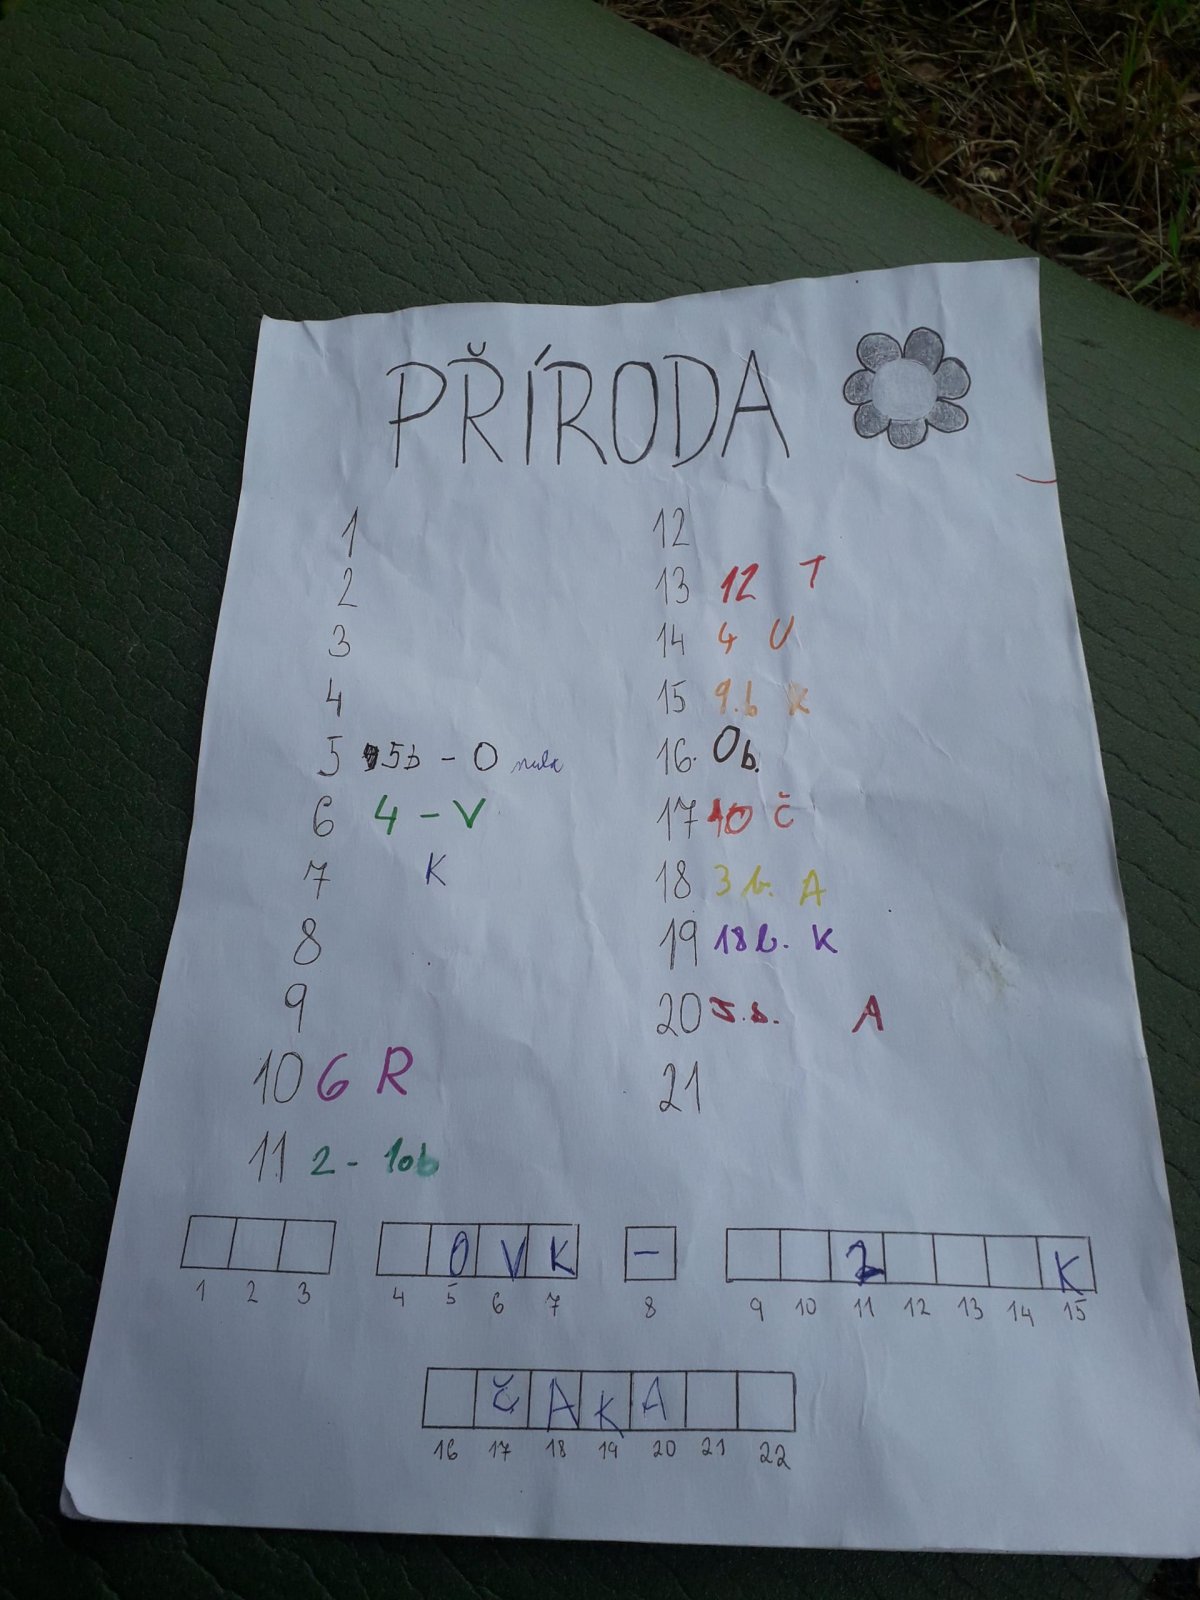 PŘÍRODA
1
2
3
4
5 5b - O nula
6 4 - V
7 K
8
9
10 6 R
11 2 - 10b
12
13 12 T
14 4 U
15 9.b K
16. 0b.
17 10 Č
18 3 b. A
19 18 b. K
20 5.b. A
21
O V K - 2 K
1 2 3 4 5 6 7 8 9 10 11 12 13 14 15
Č A K A
16 17 18 19 20 21 22